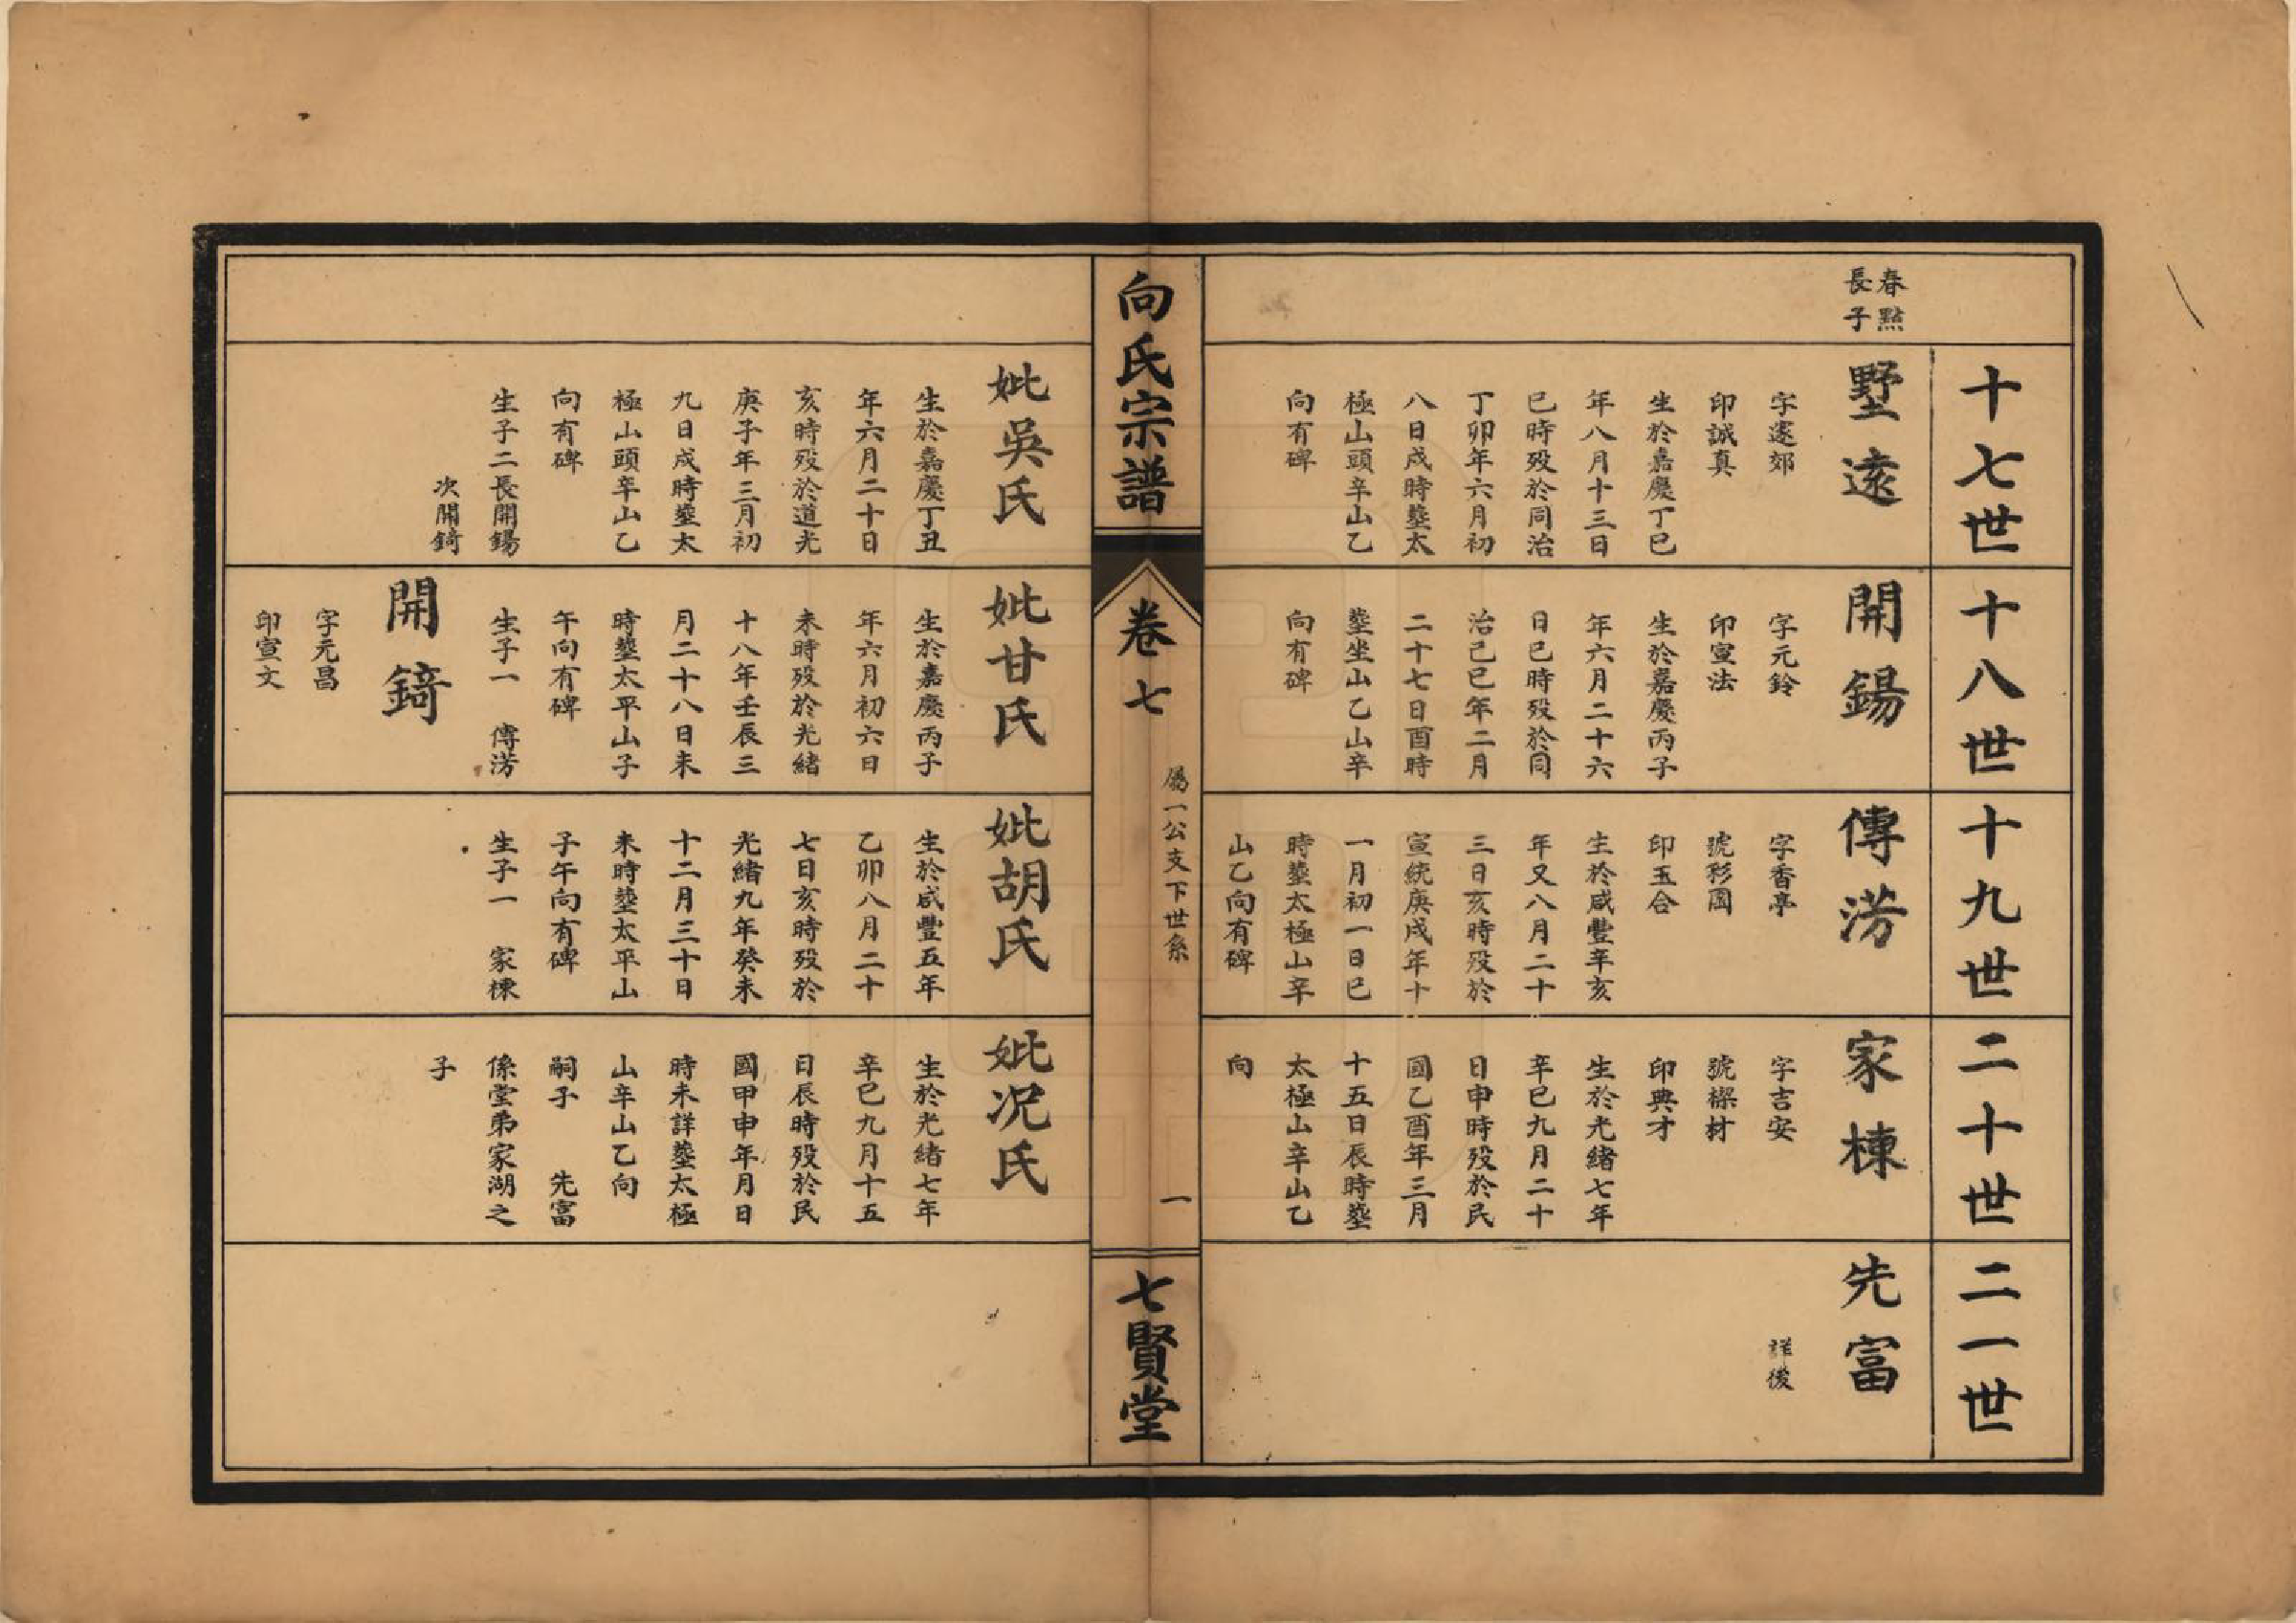 春黙
長子
十七世
墅遠
字邃郊
印誠真
生於嘉慶丁巳
年八月十三日
巳時歿於同治
丁卯年六月初
八日戌時塟太
極山頭辛山乙
向有碑
妣吳氏
生於嘉慶丁丑
年六月二十日
亥時歿於道光
庚子年三月初
九日戌時塟太
極山頭辛山乙
向有碑
生子二長開錫
次開錡
十八世
開錫
字元鈴
印宣法
生於嘉慶丙子
年六月二十六
日巳時歿於同
治己巳年二月
二十七日酉時
塟坐山乙山辛
向有碑
妣甘氏
生於嘉慶丙子
年六月初六日
未時歿於光緒
十八年壬辰三
月二十八日未
時塟太平山子
午向有碑
生子一 傳淓
開錡
字元昌
印宣文
十九世
傳淓
字香亭
號彩圊
印玉合
生於咸豐辛亥
年又八月二十
三日亥時歿於
宣統庚戌年十
一月初一日巳
時塟太極山辛
山乙向有碑
妣胡氏
生於咸豐五年
乙卯八月二十
七日亥時歿於
光緒九年癸未
十二月三十日
未時塟太平山
子午向有碑
生子一 家棟
二十世
家棟
字吉安
號樑材
印典才
生於光緒七年
辛巳九月二十
日申時歿於民
國乙酉年三月
十五日辰時塟
太極山辛山乙
向
妣况氏
生於光緒七年
辛巳九月十五
日辰時歿於民
國甲申年月日
時未詳塟太極
山辛山乙向
嗣子 先富
係堂弟家湖之
子
二一世
先富
詳後
向氏宗譜
卷七
屬一公支下世系
一
七賢堂